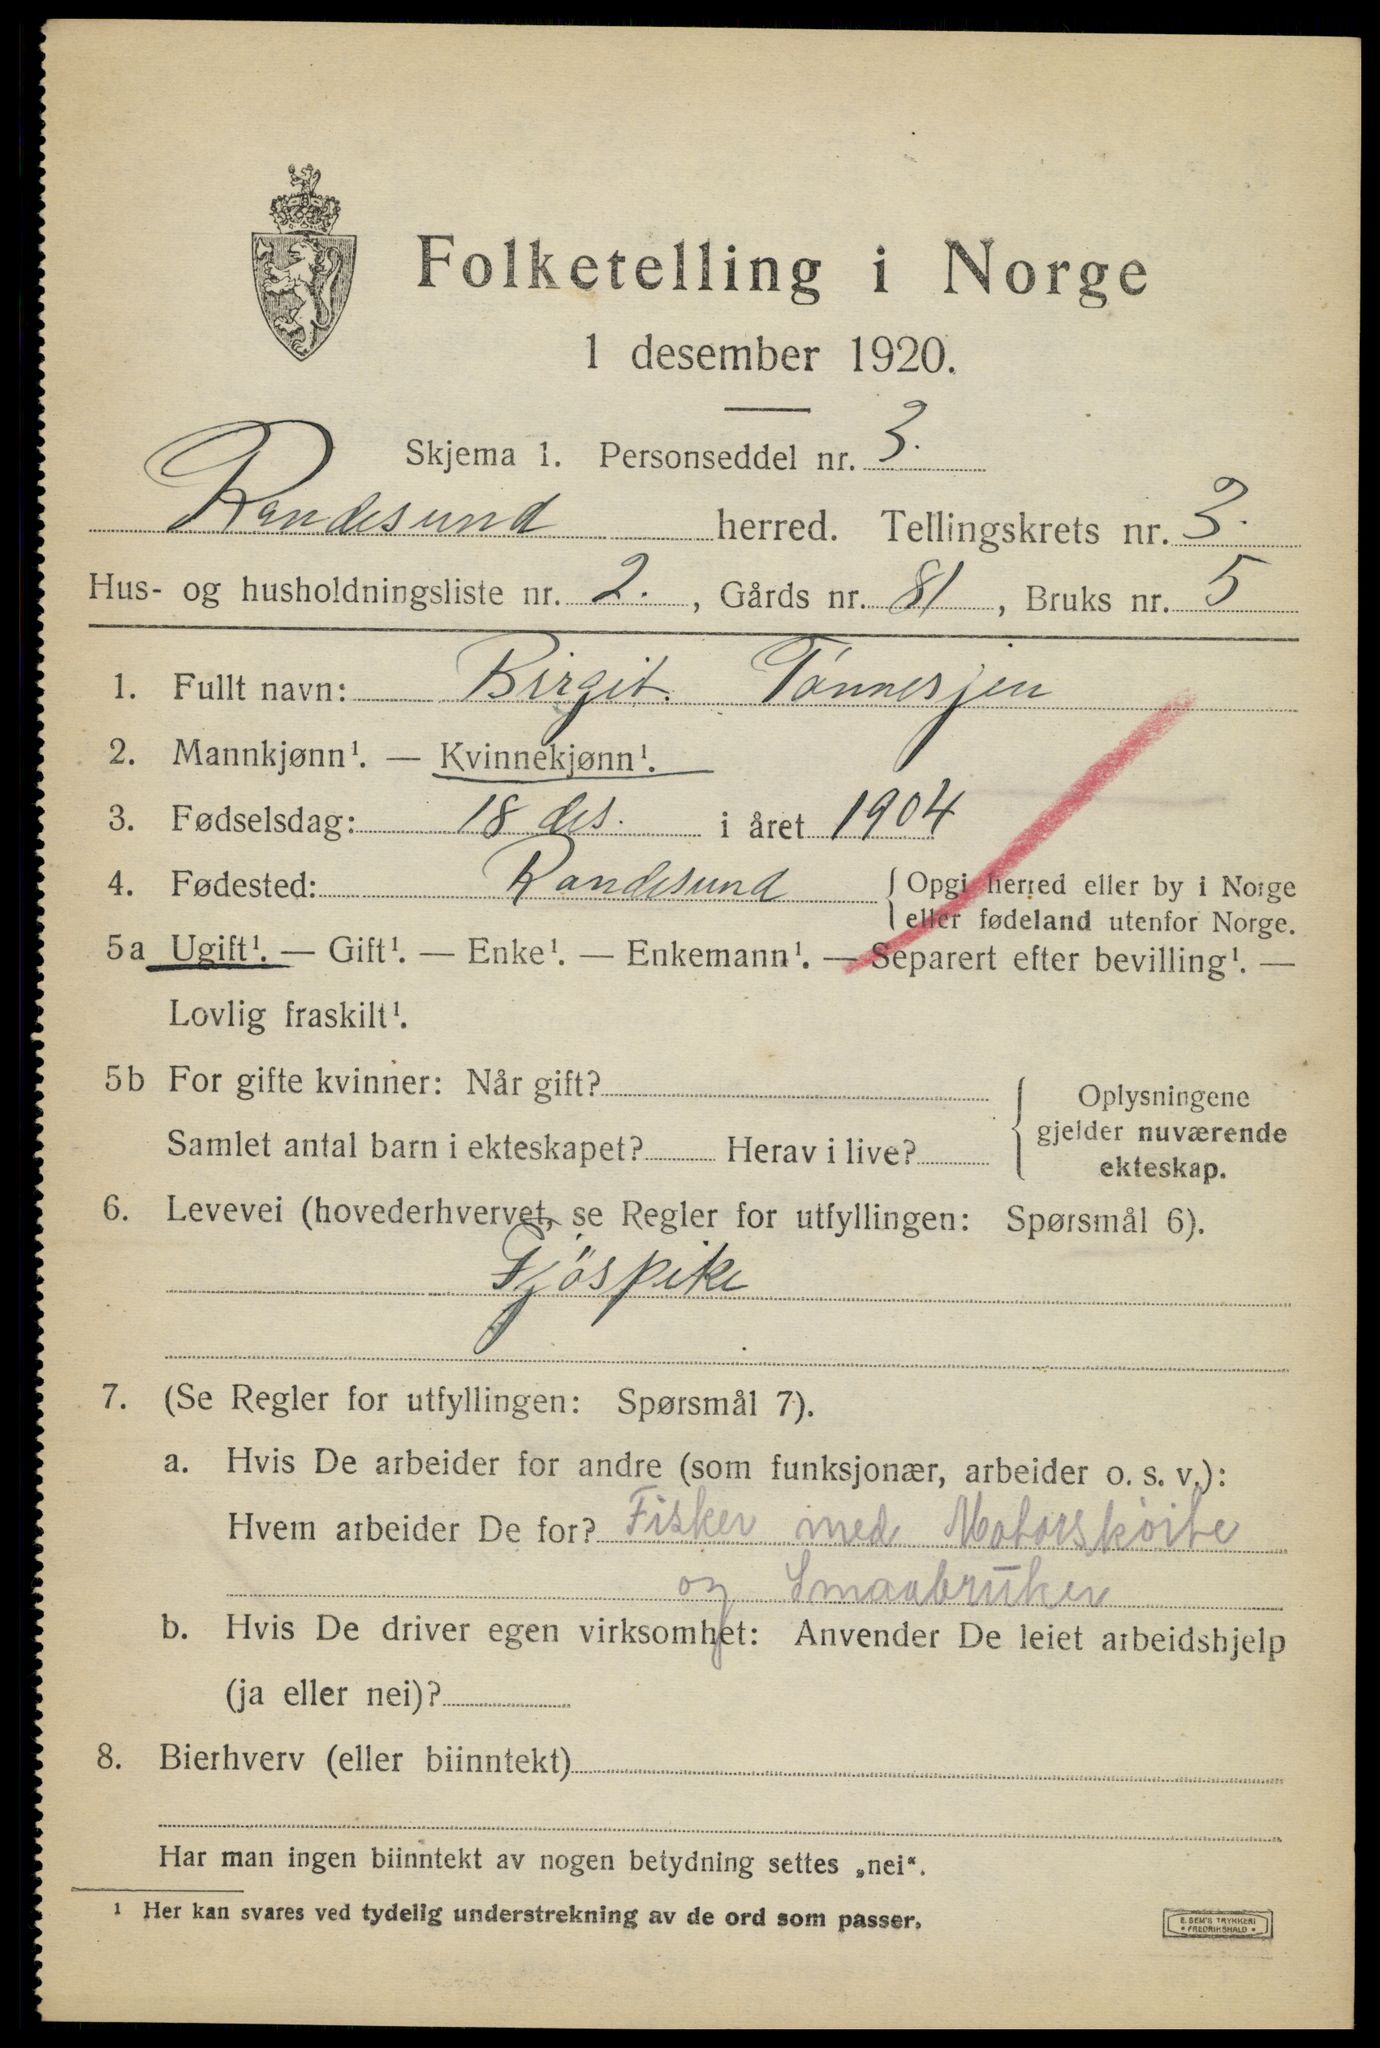 Folketelling i Norge
1 desember 1920.
Skjema 1. Personseddel nr. 3.
Randesund herred. Tellingskrets nr. 3.
Hus- og husholdningsliste nr. 2. , Gårds nr. 81 , Bruks nr. 5
1. Fullt navn: Birgit Tönnesjen
2. Mannkjønn¹. — Kvinnekjønn¹.
3. Fødselsdag: 18 des. i året 1904
4. Fødested: Randesund { Opgi herred eller by i Norge
eller fødeland utenfor Norge.
5a Ugift¹. — Gift¹. — Enke¹. — Enkemann¹. — Separert efter bevilling¹. —
Lovlig fraskilt¹.
5b For gifte kvinner: Når gift?
Samlet antal barn i ekteskapet? Herav i live?
{ Oplysningene
gjelder nuværende
ekteskap.
6. Levevei (hovederhvervet, se Regler for utfyllingen: Spørsmål 6).
Fjöspike
7. (Se Regler for utfyllingen: Spørsmål 7).
a. Hvis De arbeider for andre (som funksjonær, arbeider o. s. v.):
Hvem arbeider De for? Fisker med Motorsköite
og Smaabruker
b. Hvis De driver egen virksomhet: Anvender De leiet arbeidshjelp
(ja eller nei)?
8. Bierhverv (eller biinntekt)
Har man ingen biinntekt av nogen betydning settes „nei“.
¹ Her kan svares ved tydelig understrekning av de ord som passer.
E. SEM'S TRYKKERI
• FREDRIKSHALD •